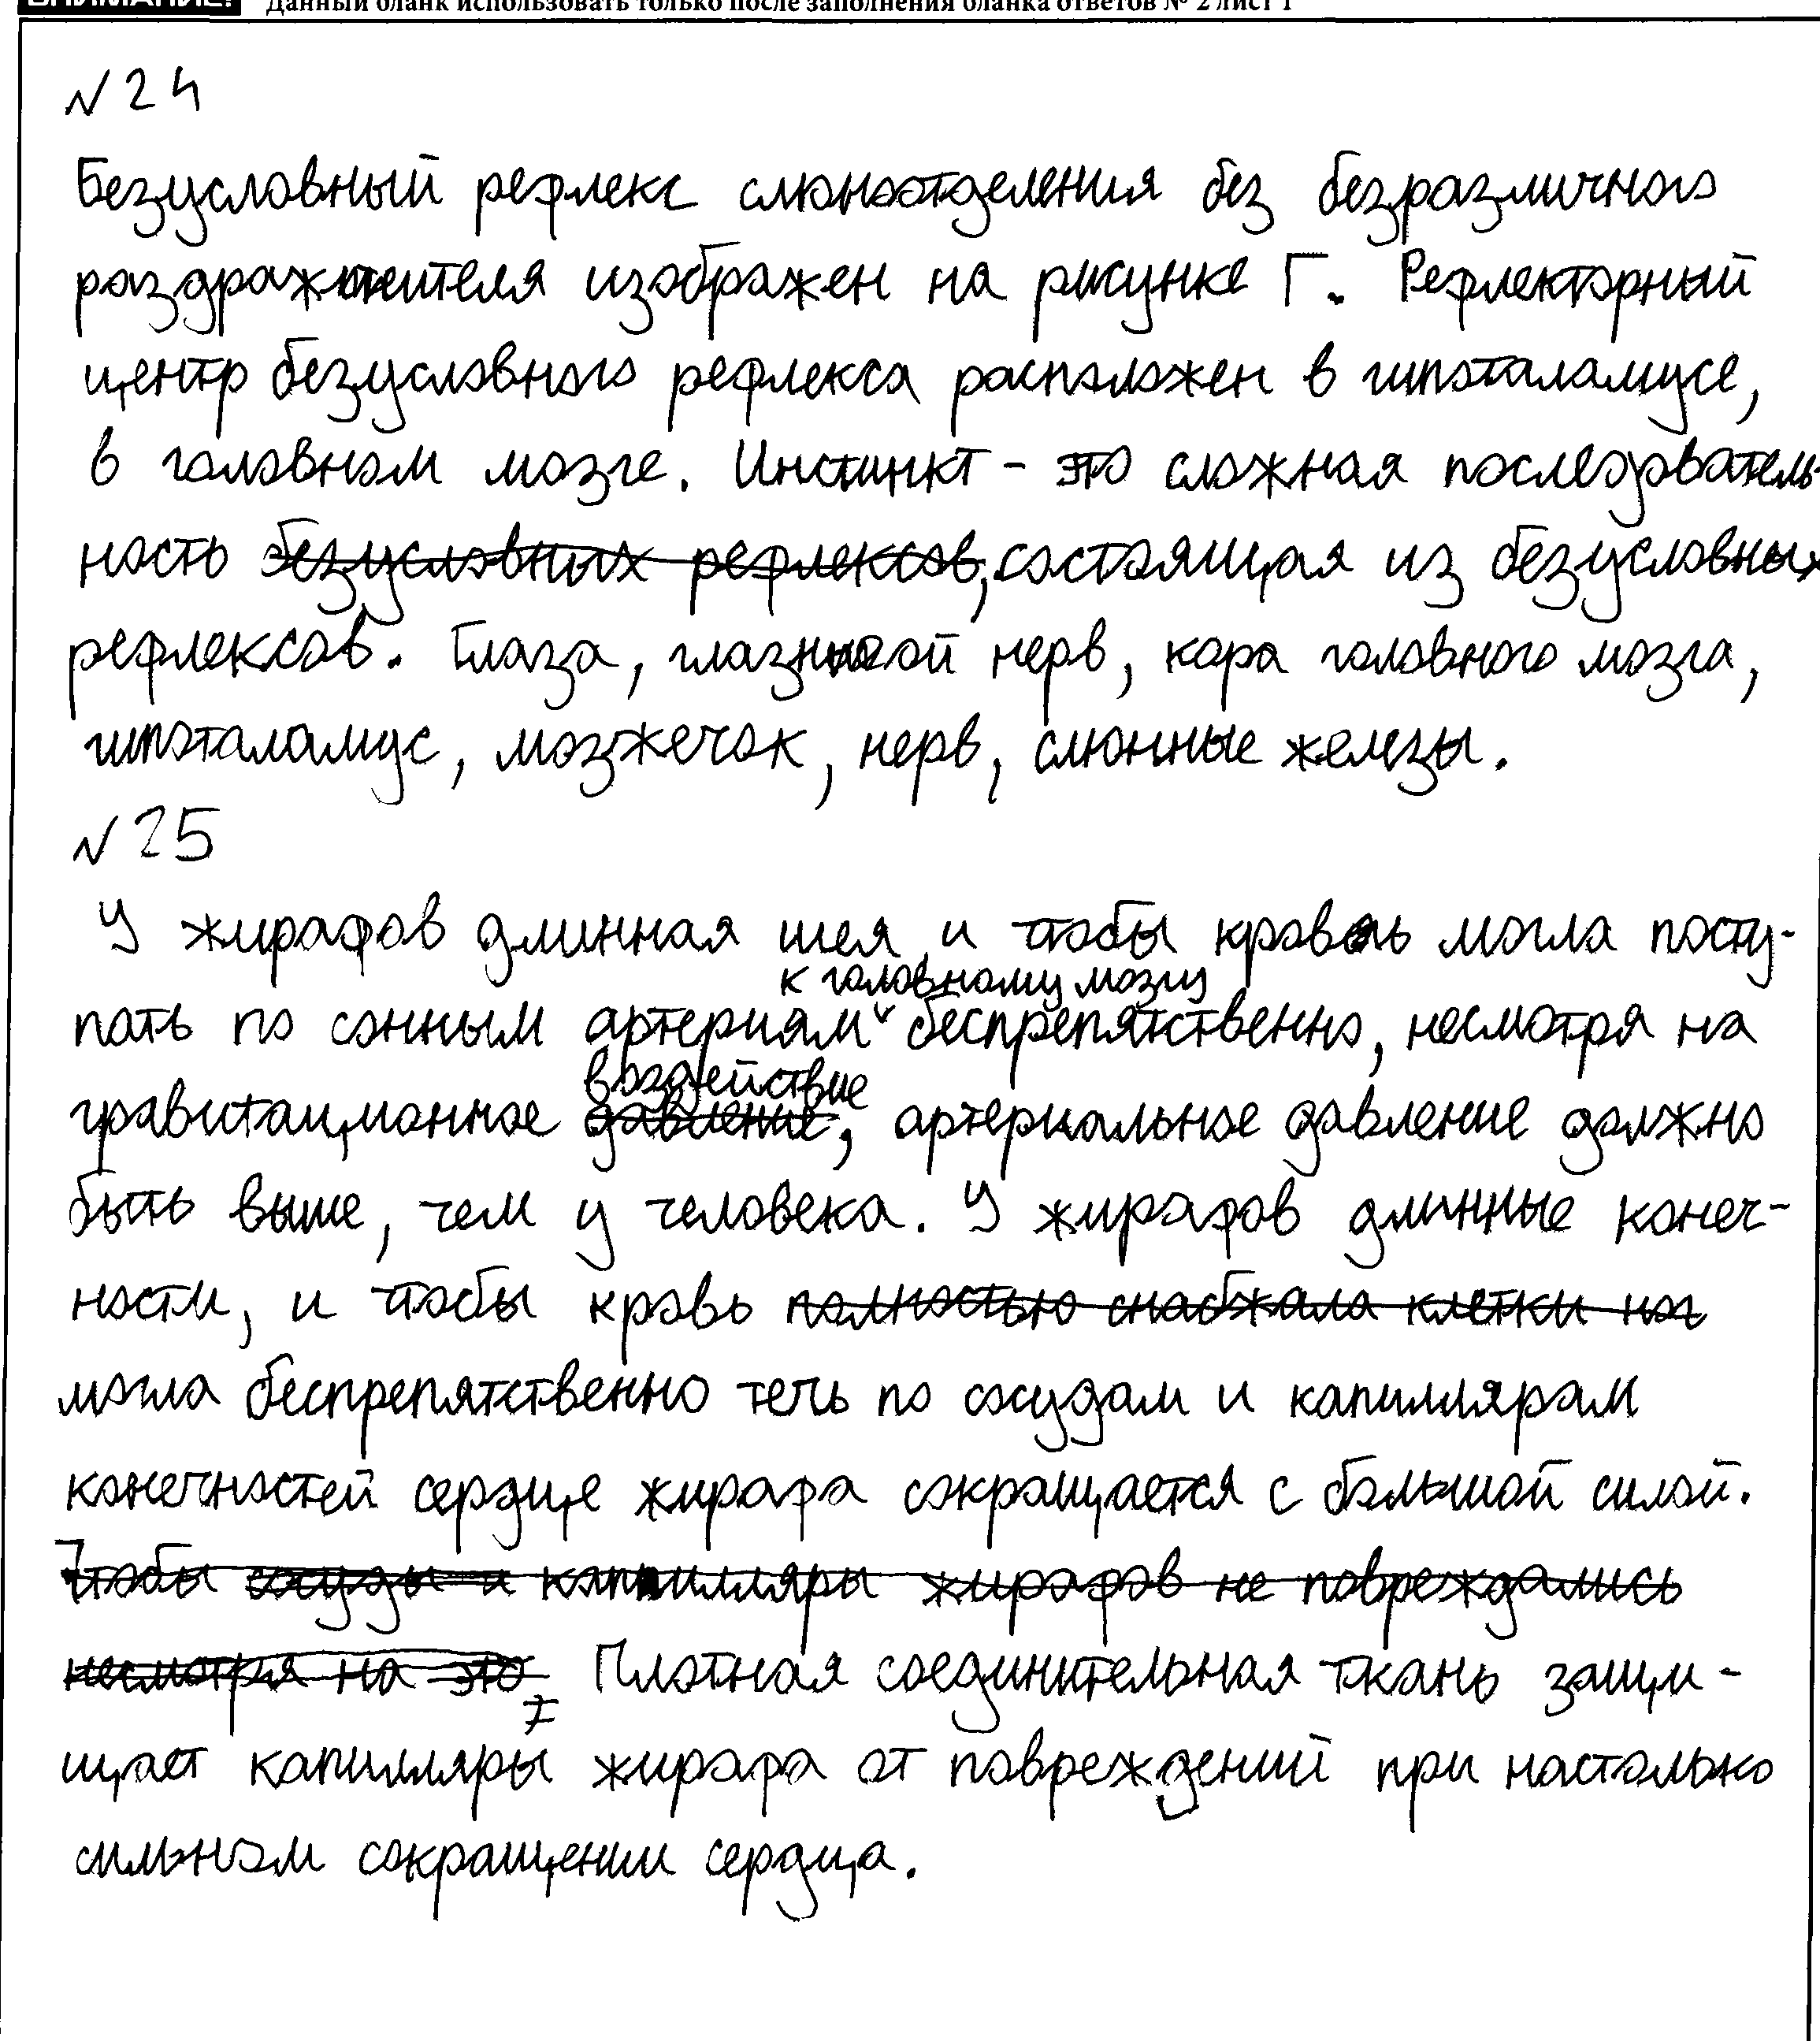 ВНИМАНИЕ! Данный бланк использовать только после заполнения бланка ответов № 2 лист 1
№24
Безусловный рефлекс слюноотделения без безразличного
раздражителя изображен на рисунке Г. Рефлекторный
центр безусловного рефлекса расположен в гипоталамусе,
в головном мозге. Инстинкт - это сложная последователь-
ность безусловных рефлексов, состоящая из безусловных
рефлексов. Глаза, глазной нерв, кора головного мозга,
гипоталамус, мозжечок, нерв, слюнные железы.
№25
У жирафов длинная шея и чтобы кровь могла посту-
к головному мозгу
пать по сонным артериям беспрепятственно, несмотря на
воздействие
гравитационное давление, артериальное давление должно
быть выше, чем у человека. У жирафов длинные конеч-
ности, и чтобы кровь полностью снабжала клетки ног
могла беспрепятственно течь по сосудам и капиллярам
конечностей сердце жирафа сокращается с большой силой.
Чтобы сосуды и капилляры жирафов не повреждались
несмотря на это, Плотная соединительная ткань защи-
щает капилляры жирафа от повреждений при настолько
сильном сокращении сердца.